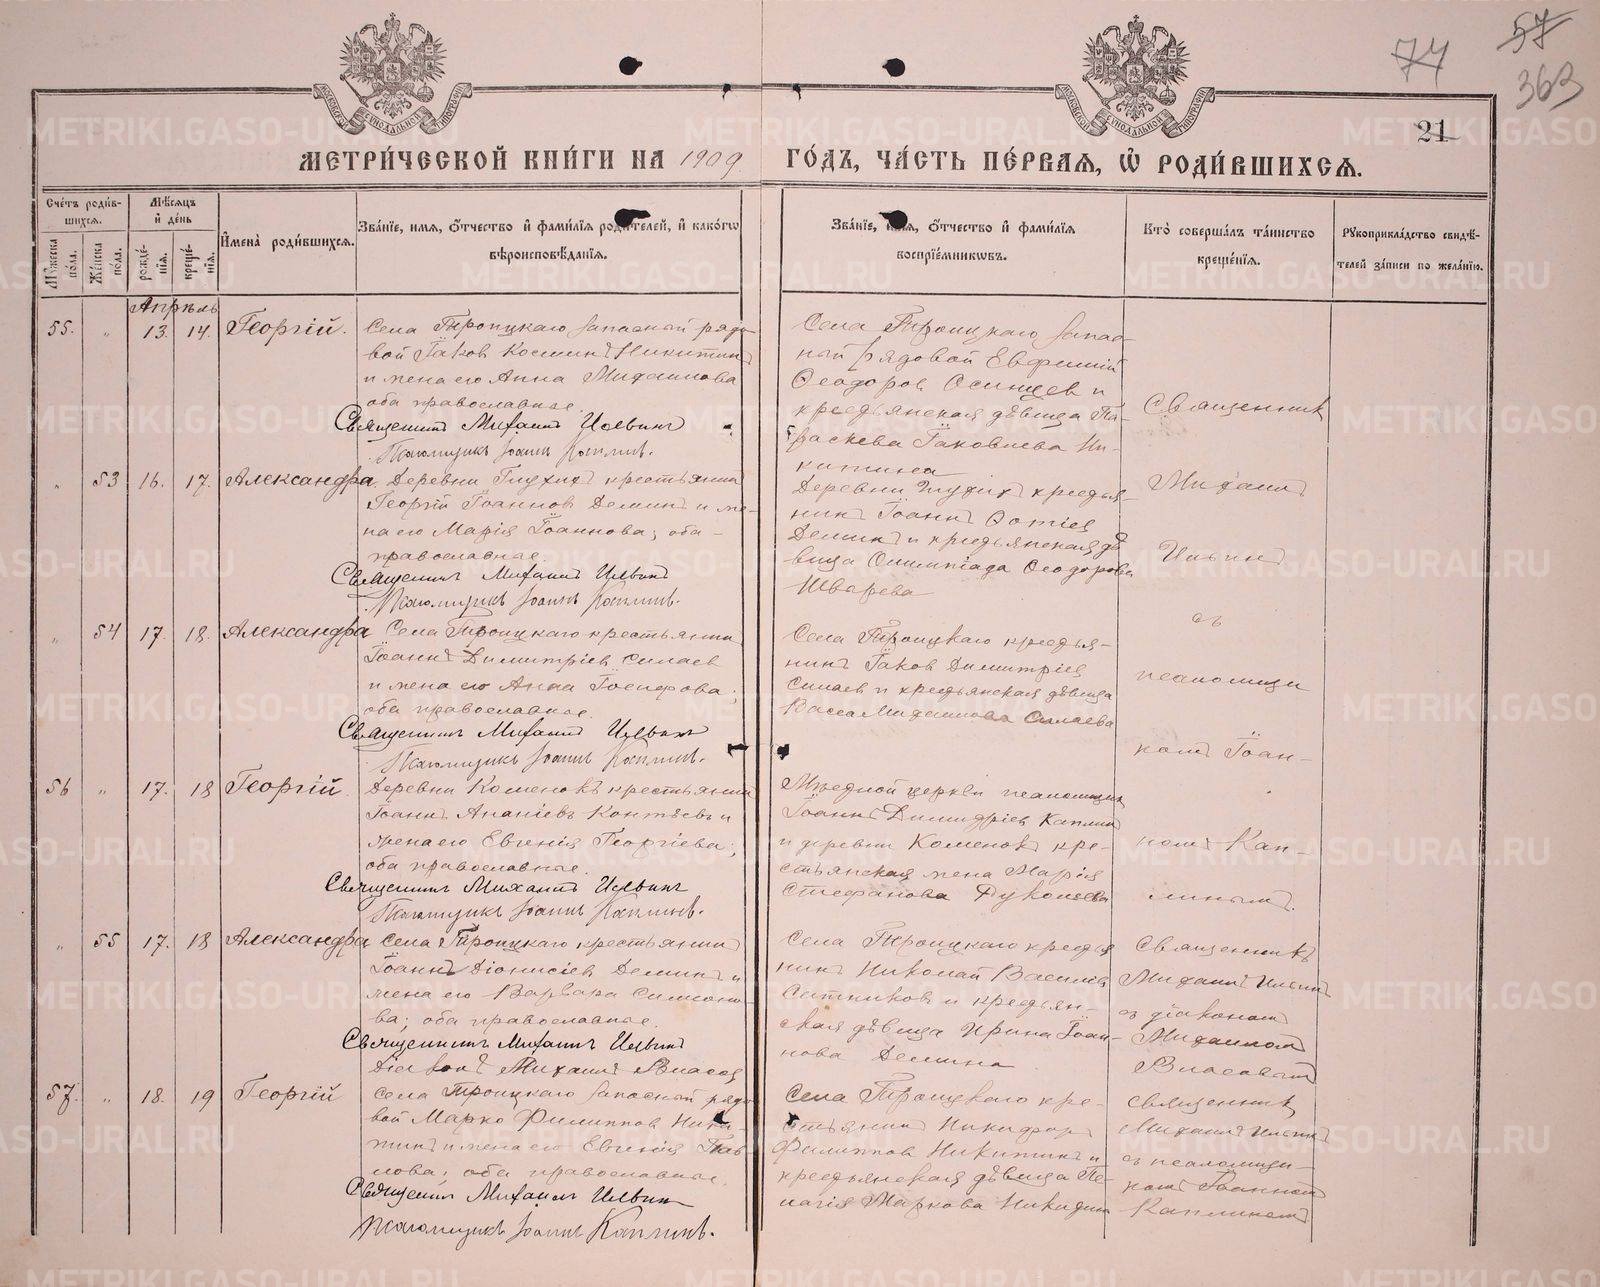 57
74
363
21
МЕТРИ́ЧЕСКОЙ КНИ́ГИ НА 1909 ГО́ДЪ, ЧА́СТЬ ПЕ́РВАЯ, Ѡ РОДИ́ВШИХСЯ.
Сче́тъ роди́вшихся.
Мѣ́сяцъ и҆ де́нь
Мꙋ́жеска по́ла.
Же́нска по́ла.
рожде́нїѧ.
креще́нїѧ.
И҆мена̀ роди́вшихсѧ.
Зва́нїе, и҆мѧ, ѻ҆́тчество и҆ фами́лїѧ роди́телей, и҆ како́гѡ
вѣроисповѣ́данїѧ.
Зва́нїе, и҆́мѧ, ѻ҆́тчество и҆ фами́лїѧ
воспрїе́мникѡвъ.
Кто̀ соверша́лъ та́инство
креще́нїѧ.
Рꙋкоприкла́дство свидѣ́-
телей за́писи по жела́нїю.
Апрѣль
55. " 13. 14. Георгій.
Села Троицкаго запасный рядо-
вой Іаков Космин Никитин
и жена его Анна Михаилова
оба православные.
Священникъ Михаилъ Ильинъ
Псаломщикъ Іоаннъ Каплинъ.
Села Троицкаго запас-
ный рядовой Евфимий
Ѳеодоров Осинцев и
крестьянская дѣвица Па-
раскева Іаковлева Ни-
китина
Священник
Михаил
Ильин
съ
псаломщи
ком Іоан-
ном Кап-
линым.
" 53 16. 17. Александра
Деревни Глухих крестьянин
Георгій Іоаннов Демин и же-
на его Марія Іоаннова; оба
православные
Священникъ Михаилъ Ильинъ
Псаломщикъ Іоаннъ Каплинъ.
Деревни Глухих крестья-
нин Іоанн Фотіев
Демин и крестьянская дѣ
вица Олимпіада Ѳеодорова
Шварева
" 54 17. 18. Александра
Села Троицкаго крестьянин
Іоанн Димитріев Силаев
и жена его Анна Іосифова;
оба православные.
Священникъ Михаилъ Ильинъ
Псаломщикъ Іоаннъ Каплинъ.
Села Троицкаго крестья-
нин Іаков Димитріев
Силаев и крестьянская дѣвица
Васса Михаилова Силаева
56 " 17. 18 Георгій
Деревни Коменокъ крестьянин
Іоанн Ананіевъ Контѣевъ и
жена его Евгенія Георгіева;
оба православные.
Священникъ Михаилъ Ильинъ
Псаломщикъ Іоаннъ Каплинъ.
церкви псаломщик
Іоанн Димитріев Каплин
и деревни Коменок кре-
стьянская жена Марія
Стефанова
" 55 17. 18 Александра
Села Троицкаго крестьянин
Іоаннъ Діонисіев Демин и
жена его Варвара Симоно-
ва; оба православные.
Священникъ Михаилъ Ильинъ
Діаконъ Михаилъ Власов
Села Троицкаго крестья
нин Николай Василіев
Ситников и крестьян-
ская дѣвица Ирина Іоан-
нова Демина
Священникъ
Михаил Ильин
съ діаконом
Михаилом
Власовым
57. " 18. 19 Георгій
Села Троицкаго запасный рядо
вой Марко Филиппов Ники-
тин и жена его Евгенія Пав-
лова; оба православные.
Священникъ Михаилъ Ильинъ
Псаломщикъ Іоаннъ Каплинъ.
Села Троицкаго кре-
стьянин Никифор
Филиппов Никитин и
крестьянская дѣвица Пе-
лагія Маркова Никитин
Священник
Михаил Ильин
съ псаломщи-
ком Іоанном
Каплиным
METRIKI.GASO-URAL.RU